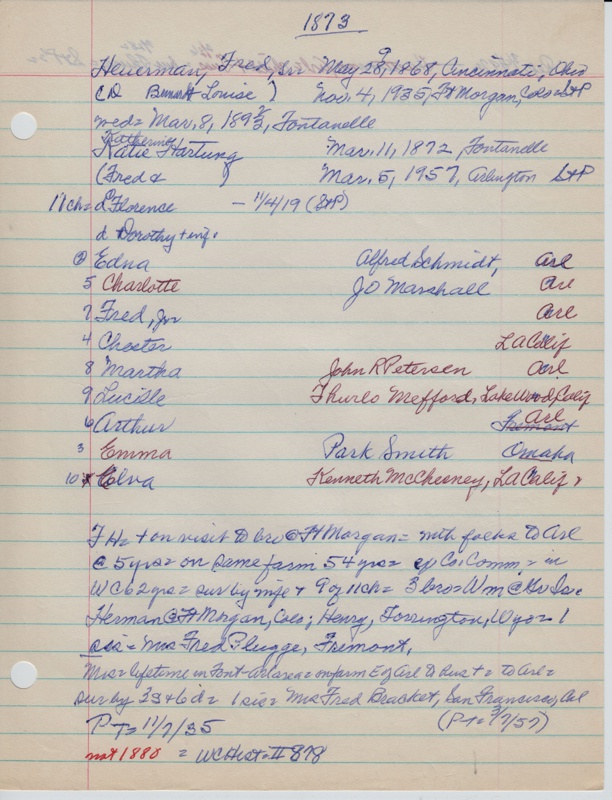 1873
Heuerman, Fred, Sr. May 28, 1868, Cincinnati, Ohio
9
(D Louise ) Nov. 4, 1935, Ft Morgan, Colo = StP
wed = Mar. 8, 1893, Fontanelle
Katherine
Katie Hartung Mar. 11, 1872, Fontanelle
(Fred & ) Mar. 5, 1957, Arlington StP
11ch = d Florence - 1/4/19 (StP)
d Dorothy + inf.
2 Edna Alfred Schmidt, Arl
5 Charlotte J O Marshall Arl
7 Fred, Jr Arl
4 Chester LA Calif
8 Martha John R Petersen Arl
9 Lucille Thurlo Mefford, Lakewood, Calif
6 Arthur Fremont Arl
3 Emma Park Smith Omaha
10 Elva Kenneth McChesney, LA Calif
F H = + on visit to bro @ Ft Morgan = with folks to Arl
@ 5 yrs = on same farm 54 yrs = Co Comm = in
W C 62 yrs = sur by wife + 9 of 11 ch = 3 bro = Wm @
Herman @ Ft Morgan, Colo; Henry, Torrington, Wyo = 1
sis = Mrs Fred Plugge, Fremont.
Mrs = lifetime in Font-Arl area = on farm E of Arl = to Arl =
sur by 3s + 6d = 1 sis = Mrs Fred Bracket, San Francisco, Cal
PT = 11/7/35 (PT = 3/7/57)
not 1880 = WC Hist = II 878